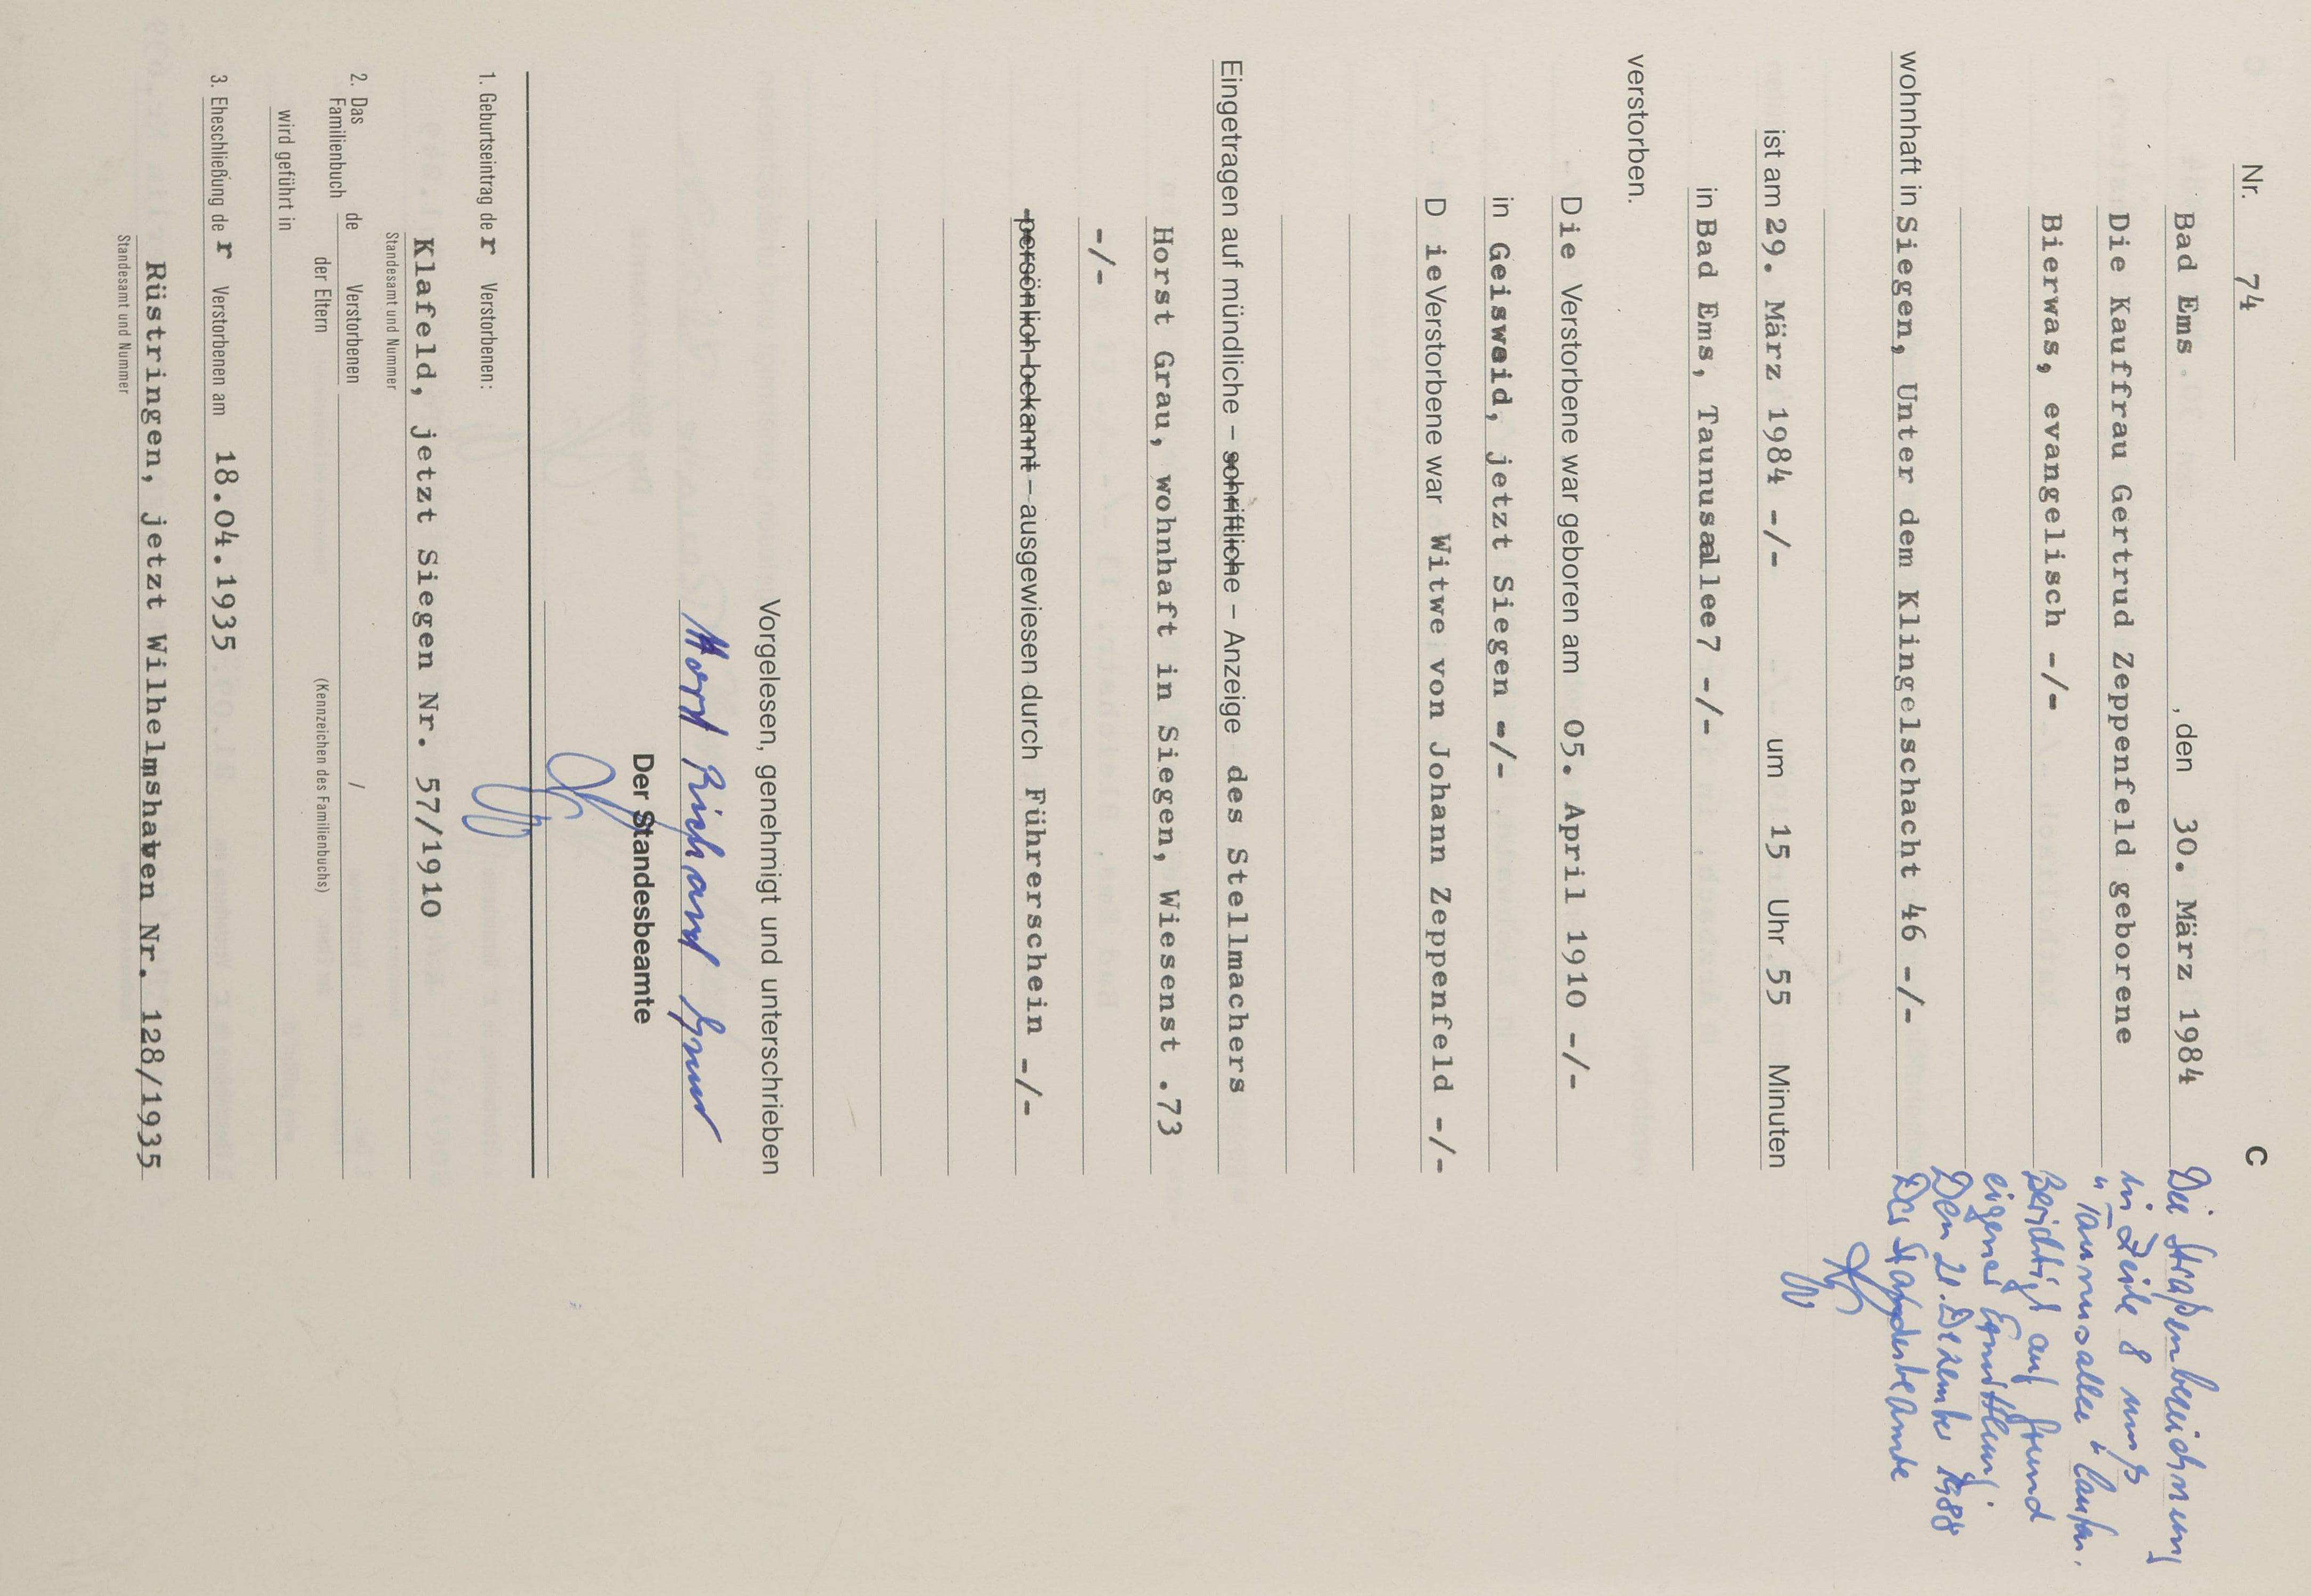 C
Nr. 74
Bad Ems, den 30. März 1984
Die Kauffrau Gertrud Zeppenfeld geborene
Bierwas, evangelisch -/-
wohnhaft in Siegen, Unter dem Klingelschacht 46 -/-
ist am 29. März 1984 -/- um 15 Uhr 55 Minuten
in Bad Ems, Taunusallee7 -/-
verstorben.
Die Verstorbene war geboren am 05. April 1910 -/-
in Geisweid, jetzt Siegen -/-
D ie Verstorbene war Witwe von Johann Zeppenfeld -/-
Eingetragen auf mündliche – schriftliche – Anzeige des Stellmachers
Horst Grau, wohnhaft in Siegen, Wiesenst .73
-/-
persönlich bekannt – ausgewiesen durch Führerschein -/-
Vorgelesen, genehmigt und unterschrieben
Horst Richard Grau
Der Standesbeamte
1. Geburtseintrag de r Verstorbenen:
Klafeld, jetzt Siegen Nr. 57/1910
Standesamt und Nummer
2. Das Familienbuch de Verstorbenen / der Eltern
wird geführt in
(Kennzeichen des Familienbuchs)
3. Eheschließung de r Verstorbenen am 18.04.1935
Rüstringen, jetzt Wilhelmshaven Nr. 128/1935
Standesamt und Nummer
Die Straßenbezeichnung
in Zeile 8 muß
"Taunusallee" lauten.
Berichtigt auf Grund
eigener Ermittlung.
Den 21. Dezember 1988
Der Standesbeamte